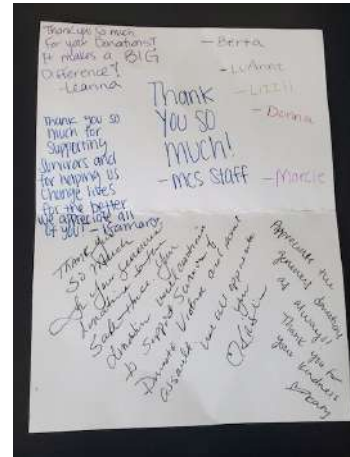 Thank you so much
for your Donations!
It makes a BIG
Difference!
-Leanna
Thank you so
much for
Supporting
Survivors and
for helping us
Change lives
for the better
we appreciate all
of you!
Thank
You so
much!
-MCS Staff
-Berta
-LuAnne
-Donna
-Marcie
Thank you
so much
for your generous
donation to
Safe
donation will continue
to support survivors of
Domestic Violence and sexual
assault. We all appreciate
you
Appreciate the
generous donation
as always!
Thank you for
your kindness